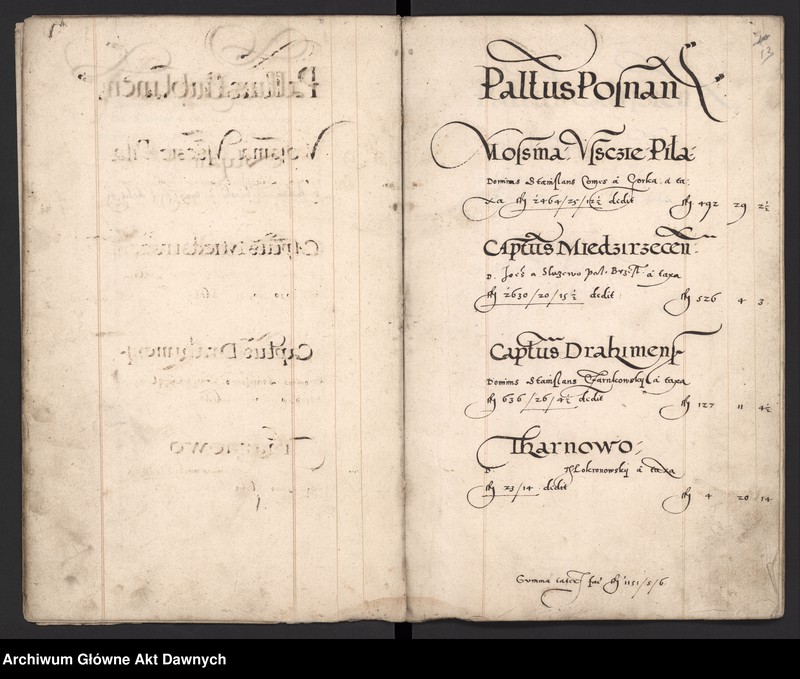 13
Pal̃tus Posnan̄
Mosśma: Vśsczie Piła:
Dominus Stanislaus Comes á Gorka. á ta
xa fl̃ 2464/25/12½ dedit fl̃ 492 29 2½
Capt̃us Miedzirzecen̄:
D. á Sluzewo pal. á taxa
fl̃ 2630/20/15½ dedit fl̃ 526 4 3
Capt̃us Drahimens
Dominus Stanislaus Czarnkowskÿ á taxa
fl̃ 636/26/4½ dedit fl̃ 127 11 4½
Tharnowo:
D. á taxa
fl̃ 23/14 dedit fl̃ 4 20 14
Summa fac̃ fl̃ 1151/5/6
Archiwum Główne Akt Dawnych